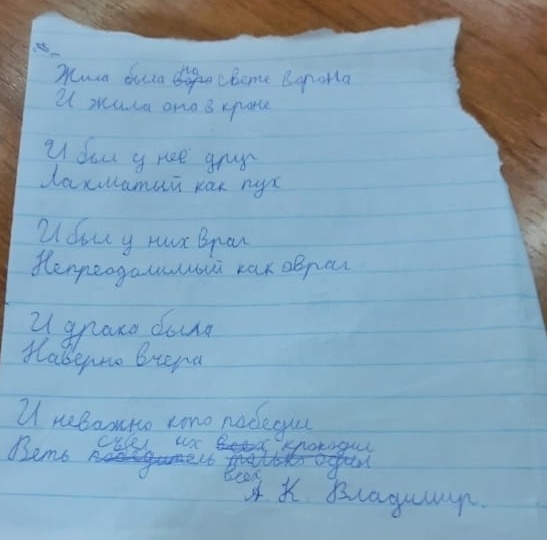 Жила была на свете ворона
И жила она в кроне
И был у неё друг
Лахматый как пух
И был у них враг
Непреодолимый как овраг
И драка была
Наверно вчера
И неважно кого победил
Веть съел их всех крокодил
А К Владимир.